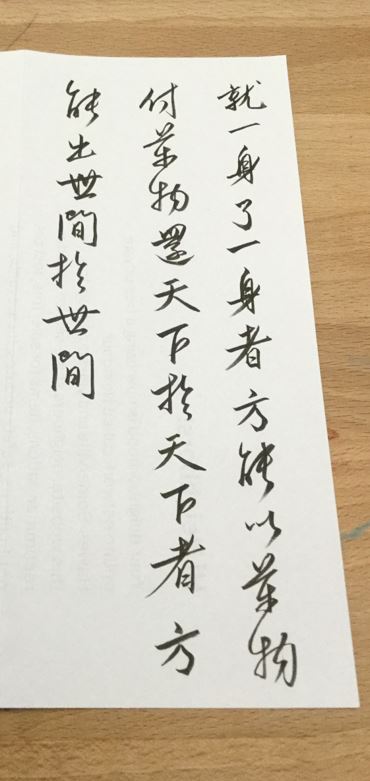 就一身了一身者方能以萬物
付萬物還天下於天下者方
能出世間於世間